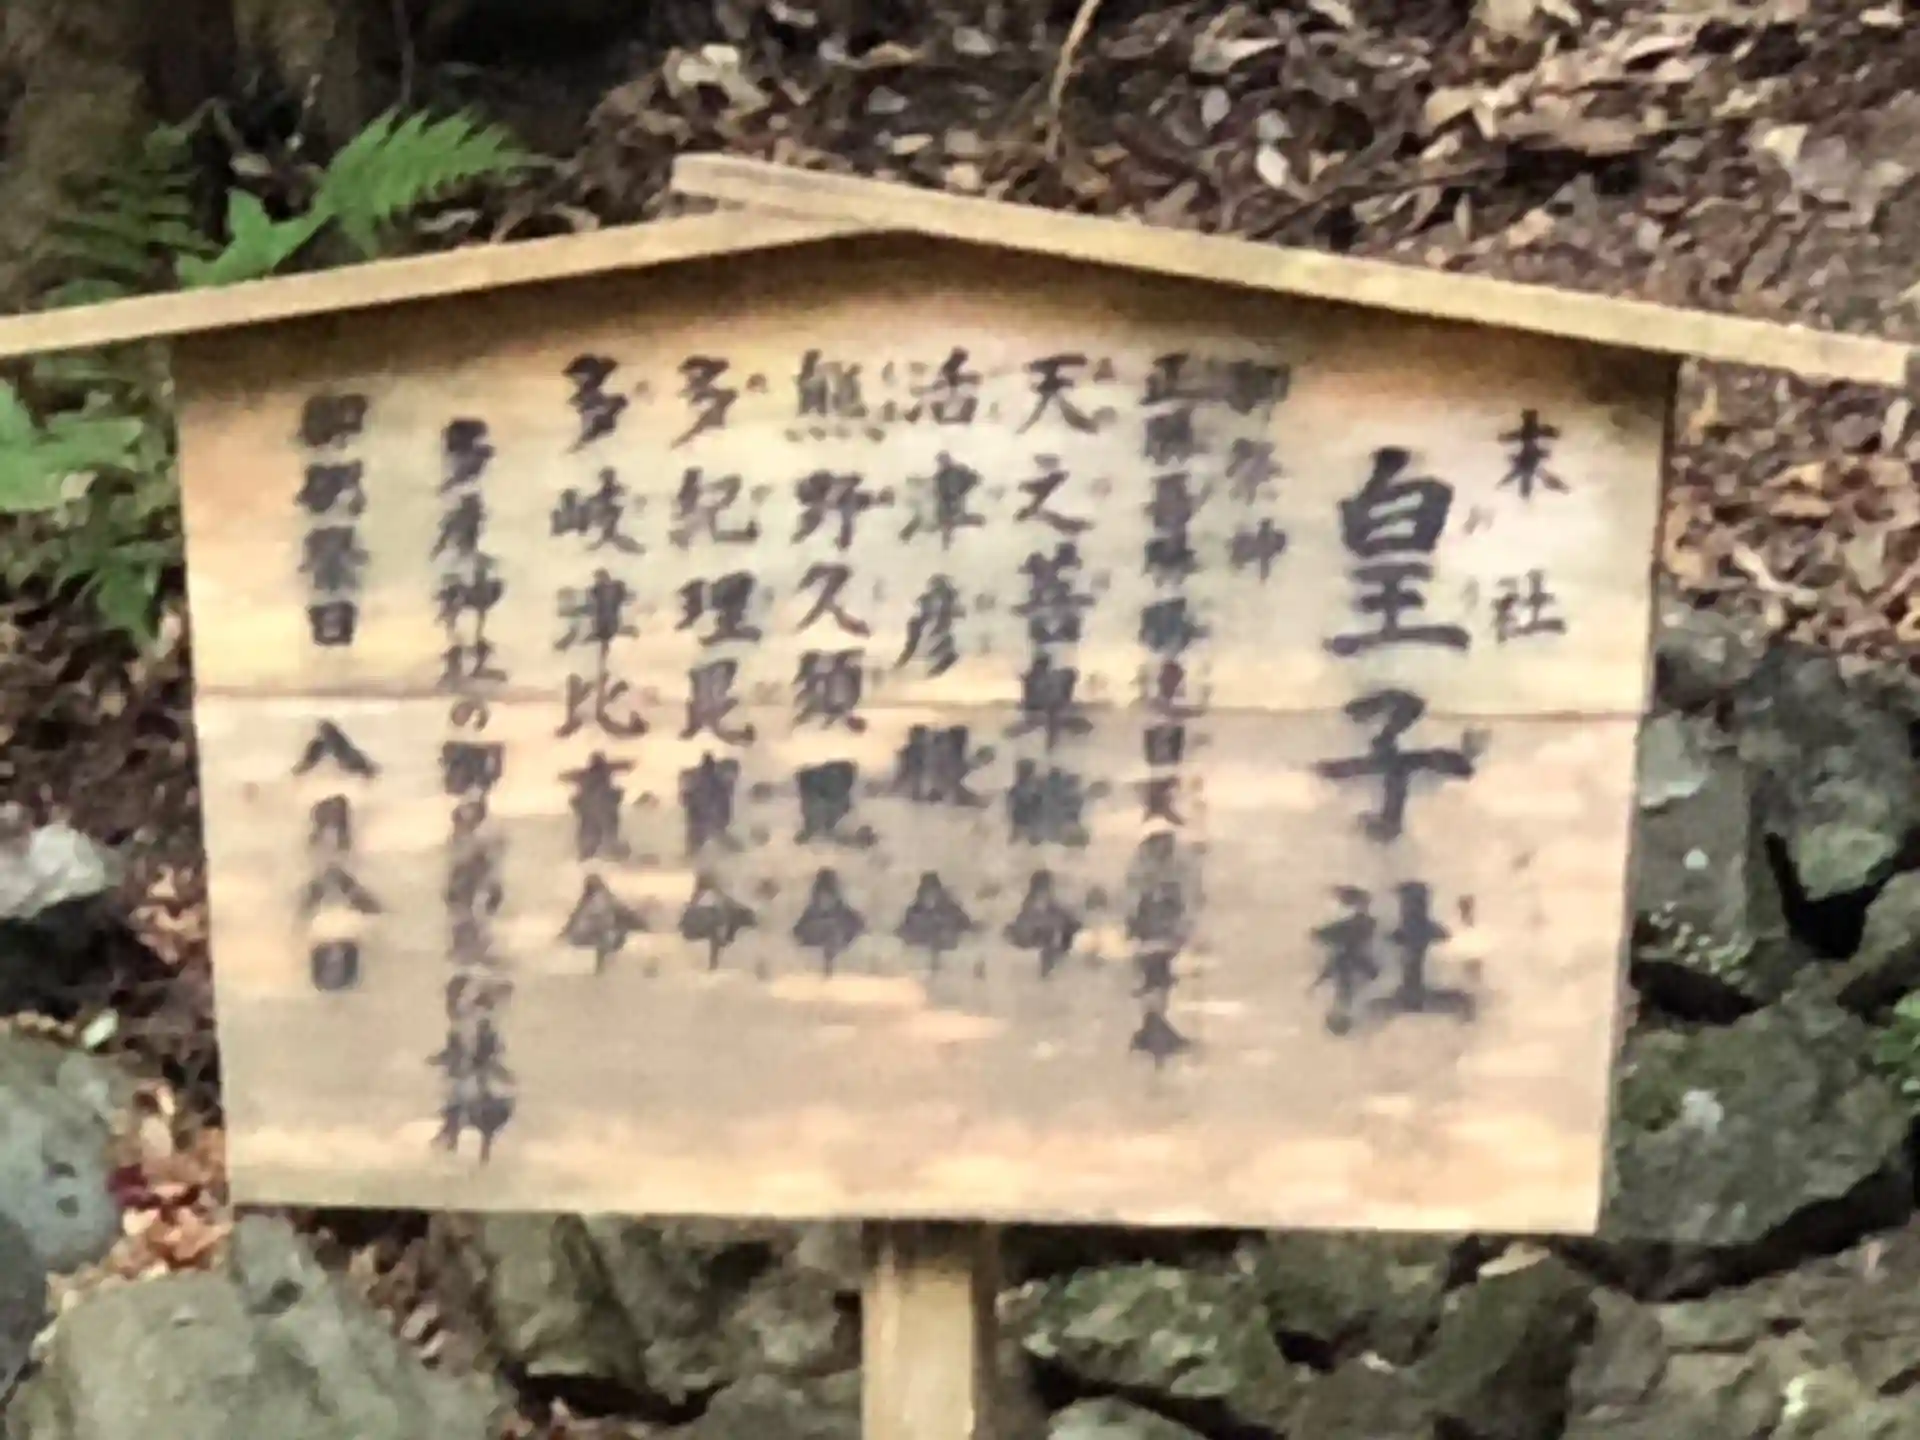 末社
皇子社
御祭神
正勝吾勝勝速日天之忍穂耳命
天之菩卑能命
活津彦根命
熊野久須毘命
多紀理毘賣命
多岐津比賣命
多度神社の御
御例祭日 八月八日